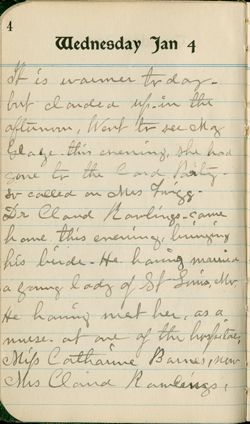 4
Wednesday Jan 4
It is warmer to day-
but clouded up in the
afternoon, Went to see
this evening, she had
gone to the Card Party-
so called on Mrs
Dr Claud Rawlings-came
home this evening, bringing
his bride- He having married
a young lady of St Louis, Mo.
He having met her, as a
nurse- at one of the hospitals,
Miss Catharine Barnes, now
Mrs Claud Rawlings,